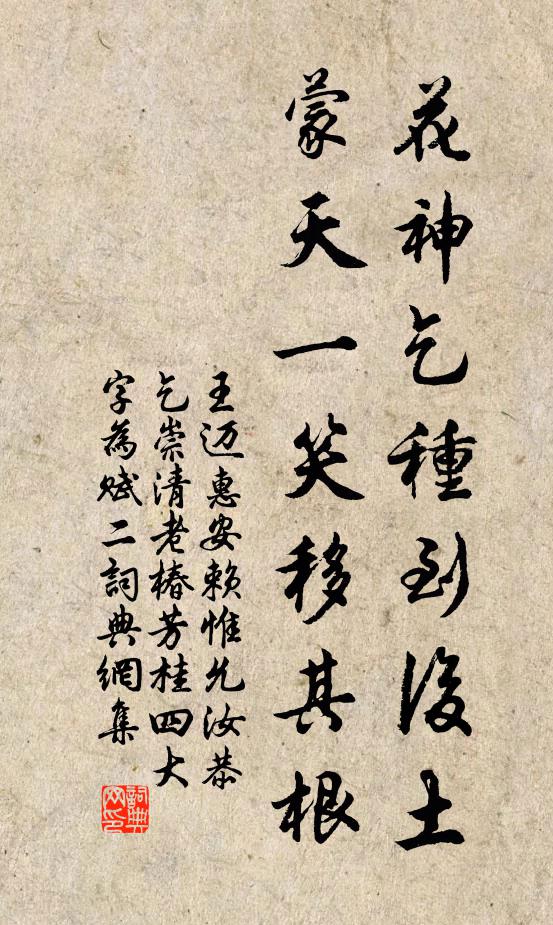 花神乞種到後土
蒙天一笑移其根
王迈惠安赖惟允汝恭
乞崇清老椿芳桂四大
字為賦二詞典網集
詞典网印